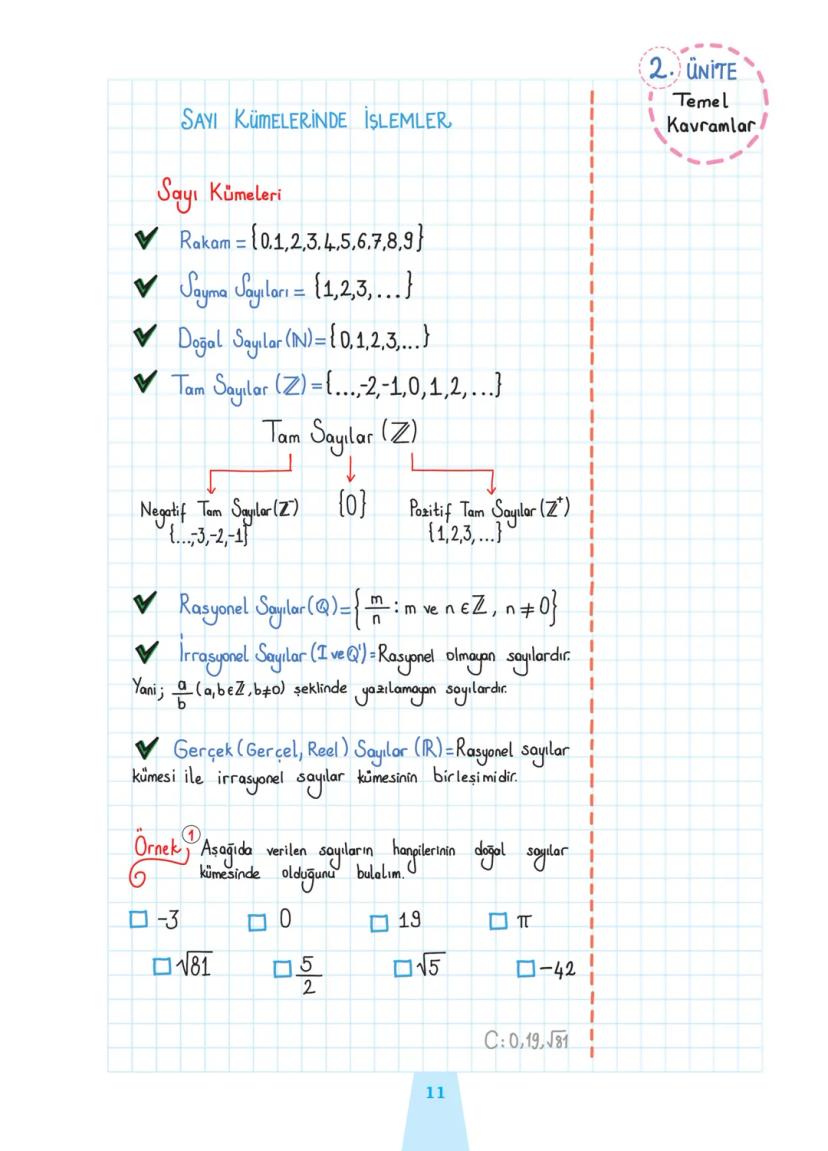 2. ÜNİTE
Temel
Kavramlar
SAYI KÜMELERİNDE İŞLEMLER
Sayı Kümeleri
✔ Rakam = {0,1,2,3,4,5,6,7,8,9}
✔ Sayma Sayıları = {1,2,3,...}
✔ Doğal Sayılar (ℕ)={0,1,2,3,...}
✔ Tam Sayılar (ℤ) ={...,-2,-1,0,1,2,...}
Tam Sayılar (ℤ)
Negatif Tam Sayılar (ℤ⁻) {0} Pozitif Tam Sayılar (ℤ⁺)
{...,-3,-2,-1} {1,2,3,...}
✔ Rasyonel Sayılar (ℚ)={m/n : m ve n ∈ ℤ, n ≠ 0}
✔ İrrasyonel Sayılar (I ve ℚ') = Rasyonel olmayan sayılardır.
Yani; a/b (a,b∈ℤ, b≠0) şeklinde yazılamayan sayılardır.
✔ Gerçek (Gerçel, Reel) Sayılar (ℝ)=Rasyonel sayılar
kümesi ile irrasyonel sayılar kümesinin birleşimidir.
Örnek; 1 Aşağıda verilen sayıların hangilerinin doğal sayılar
kümesinde olduğunu bulalım.
☐ -3 ☐ 0 ☐ 19 ☐ π
☐ √81 ☐ 5/2 ☐ √5 ☐ -42
C: 0,19,√81
11